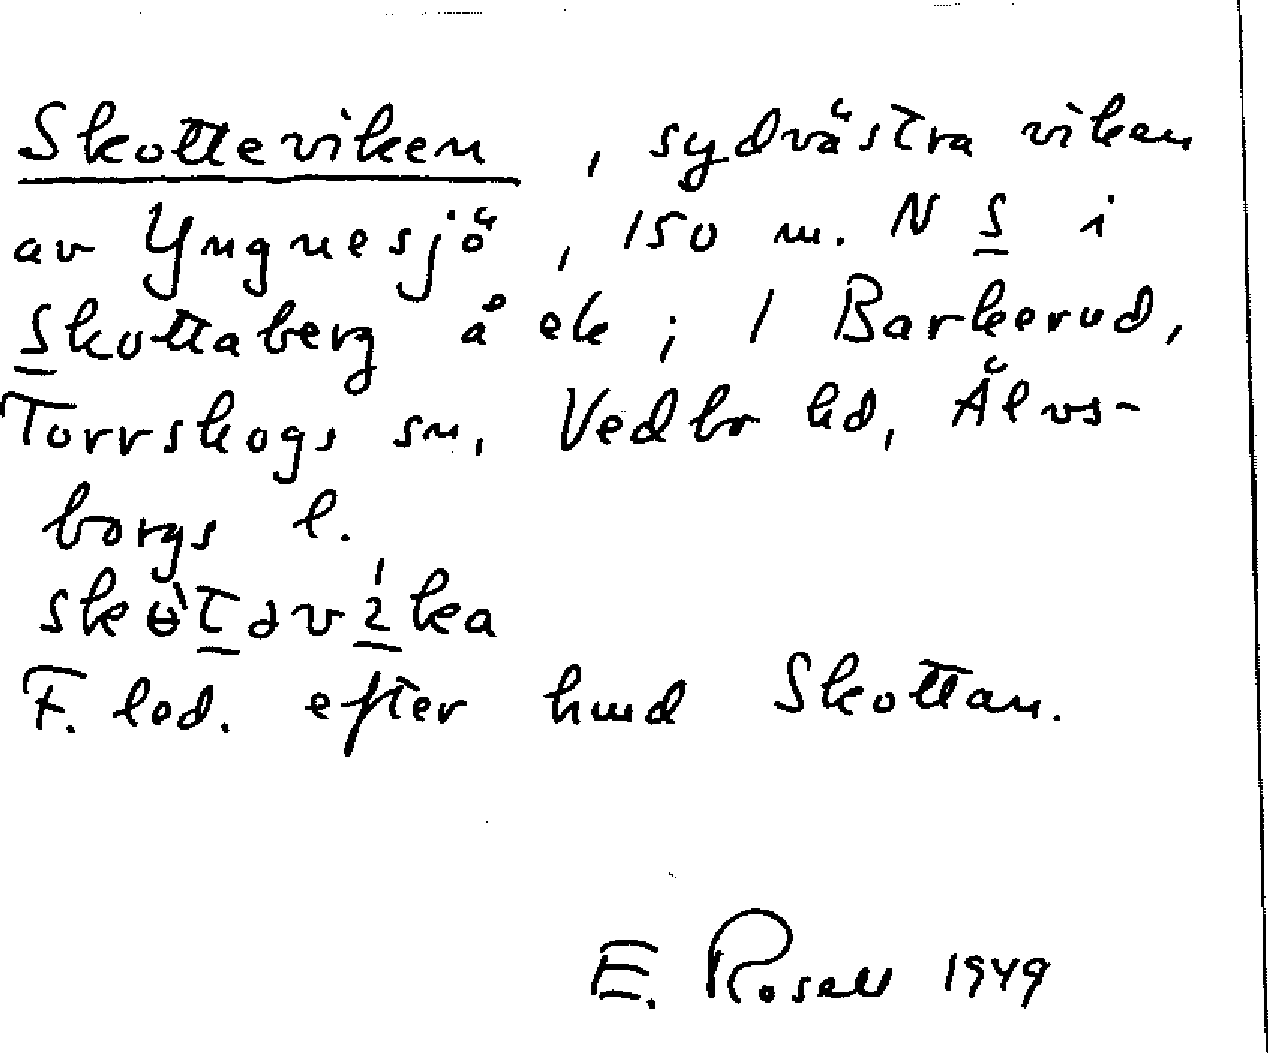 Skotteviken, sydvästra viken
av Yngnesjö, 150 m. N S i
Skottaberg å ek; 1 Barkerud,
Torrskogs sn, Vedbo hd, Älvs-
borgs l.
skɵ̀t̲əvi̲ka
F. led. efter hund Skottan.
E. Rosell 1949